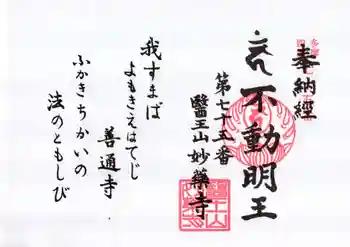 奉納經
不動明王
第七十五番
醫王山妙藥寺
我すまば
よもきえはてじ
善通寺
ふかきちかいの
法のともしび